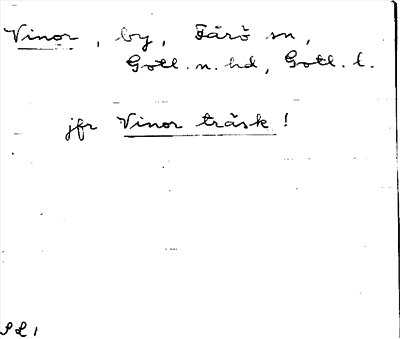 Vinor, by, Fårö sn,
Gotl. n. hd, Gotl. l.
jfr Vinor träsk!